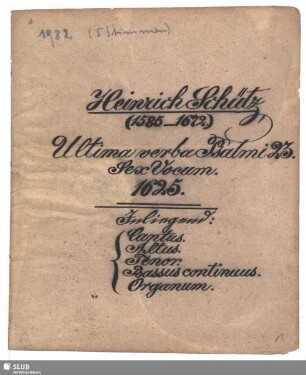 1982 (5 Stimmen)
Heinrich Schütz
(1585-1672)
Ultima verba Psalmi 23.
Sex Vocum.
1625.
Inliegend:
Cantus.
Altus.
Tenor.
Bassus continuus.
Organum.
SLUB
Wir führen Wissen.